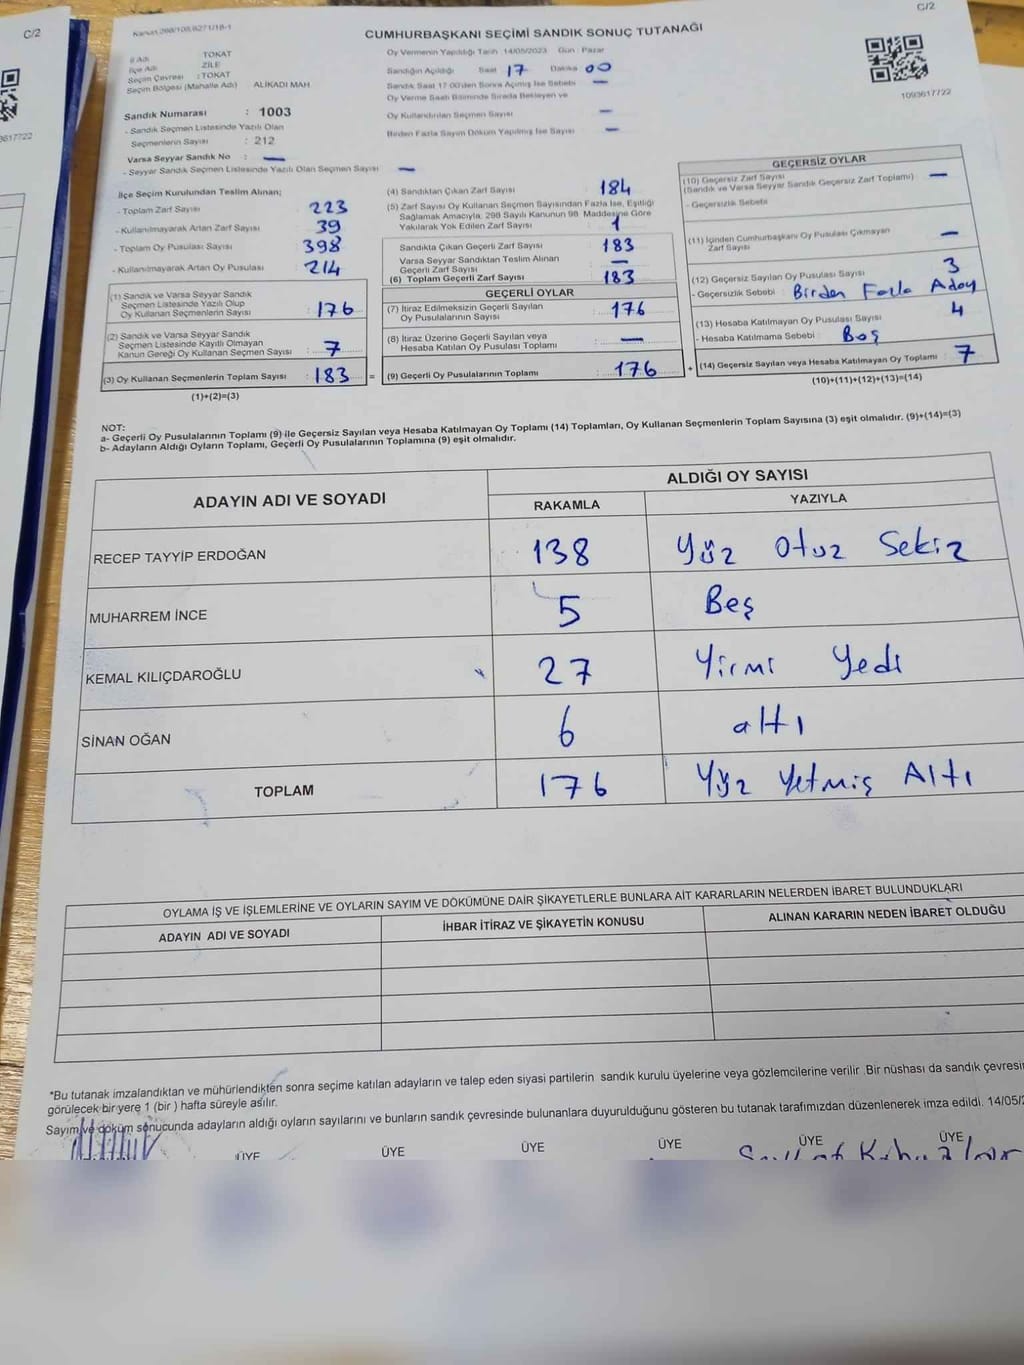 C/2
C/2
Kanun 298/105,6271/18-1
CUMHURBAŞKANI SEÇİMİ SANDIK SONUÇ TUTANAĞI
İl Adı TOKAT
İlçe Adı ZİLE
Seçim Çevresi : TOKAT
Seçim Bölgesi (Mahalle Adı) ALİKADI MAH
Oy Vermenin Yapıldığı Tarih 14/05/2023 Gün : Pazar
Sandığın Açıldığı Saat 17 Dakika 00
Sandık Saat 17:00'den Sonra Açılmış İse Sebebi —
Oy Verme Saati Bitiminde Sırada Bekleyen ve
Oy Kullandırılan Seçmen Sayısı —
Birden Fazla Sayım Döküm Yapılmış İse Sayısı —
1093617722
3617722
Sandık Numarası : 1003
- Sandık Seçmen Listesinde Yazılı Olan
Seçmenlerin Sayısı : 212
Varsa Seyyar Sandık No : —
- Seyyar Sandık Seçmen Listesinde Yazılı Olan Seçmen Sayısı —
İlçe Seçim Kurulundan Teslim Alınan;
- Toplam Zarf Sayısı 223
- Kullanılmayarak Artan Zarf Sayısı 39
- Toplam Oy Pusulası Sayısı 398
- Kullanılmayarak Artan Oy Pusulası 214
(1) Sandık ve Varsa Seyyar Sandık
Seçmen Listesinde Yazılı Olup
Oy Kullanan Seçmenlerin Sayısı : 176
(2) Sandık ve Varsa Seyyar Sandık
Seçmen Listesinde Kayıtlı Olmayan
Kanun Gereği Oy Kullanan Seçmen Sayısı : 7
(3) Oy Kullanan Seçmenlerin Toplam Sayısı : 183 =
(1)+(2)=(3)
(4) Sandıktan Çıkan Zarf Sayısı 184
(5) Zarf Sayısı Oy Kullanan Seçmen Sayısından Fazla İse, Eşitliği
Sağlamak Amacıyla, 298 Sayılı Kanunun 98. Maddesine Göre
Yakılarak Yok Edilen Zarf Sayısı 1
Sandıkta Çıkan Geçerli Zarf Sayısı : 183
Varsa Seyyar Sandıktan Teslim Alınan
Geçerli Zarf Sayısı : —
(6) Toplam Geçerli Zarf Sayısı : 183
GEÇERLİ OYLAR
(7) İtiraz Edilmeksizin Geçerli Sayılan
Oy Pusulalarının Sayısı : 176
(8) İtiraz Üzerine Geçerli Sayılan veya
Hesaba Katılan Oy Pusulası Toplamı : —
(9) Geçerli Oy Pusulalarının Toplamı : 176 +
GEÇERSİZ OYLAR
(10) Geçersiz Zarf Sayısı —
(Sandık ve Varsa Seyyar Sandık Geçersiz Zarf Toplamı)
- Geçersizlik Sebebi
(11) İçinden Cumhurbaşkanı Oy Pusulası Çıkmayan
Zarf Sayısı —
(12) Geçersiz Sayılan Oy Pusulası Sayısı 3
- Geçersizlik Sebebi : Birden Fazla Aday
(13) Hesaba Katılmayan Oy Pusulası Sayısı 4
- Hesaba Katılmama Sebebi : Boş
(14) Geçersiz Sayılan veya Hesaba Katılmayan Oy Toplamı : 7
(10)+(11)+(12)+(13)=(14)
NOT:
a- Geçerli Oy Pusulalarının Toplamı (9) ile Geçersiz Sayılan veya Hesaba Katılmayan Oy Toplamı (14) Toplamları, Oy Kullanan Seçmenlerin Toplam Sayısına (3) eşit olmalıdır. (9)+(14)=(3)
b- Adayların Aldığı Oyların Toplamı, Geçerli Oy Pusulalarının Toplamına (9) eşit olmalıdır.
ADAYIN ADI VE SOYADI
ALDIĞI OY SAYISI
RAKAMLA YAZIYLA
RECEP TAYYİP ERDOĞAN 138 Yüz Otuz Sekiz
MUHARREM İNCE 5 Beş
KEMAL KILIÇDAROĞLU 27 Yirmi Yedi
SİNAN OĞAN 6 altı
TOPLAM 176 Yüz Yetmiş Altı
OYLAMA İŞ VE İŞLEMLERİNE VE OYLARIN SAYIM VE DÖKÜMÜNE DAİR ŞİKAYETLERLE BUNLARA AİT KARARLARIN NELERDEN İBARET BULUNDUKLARI
ADAYIN ADI VE SOYADI İHBAR İTİRAZ VE ŞİKAYETİN KONUSU ALINAN KARARIN NEDEN İBARET OLDUĞU
*Bu tutanak imzalandıktan ve mühürlendikten sonra seçime katılan adayların ve talep eden siyasi partilerin sandık kurulu üyelerine veya gözlemcilerine verilir .Bir nüshası da sandık çevresi
görülecek bir yere 1 (bir ) hafta süreyle asılır.
Sayım ve döküm sonucunda adayların aldığı oyların sayılarını ve bunların sandık çevresinde bulunanlara duyurulduğunu gösteren bu tutanak tarafımızdan düzenlenerek imza edildi. 14/05/2
ÜYE ÜYE ÜYE ÜYE ÜYE ÜYE